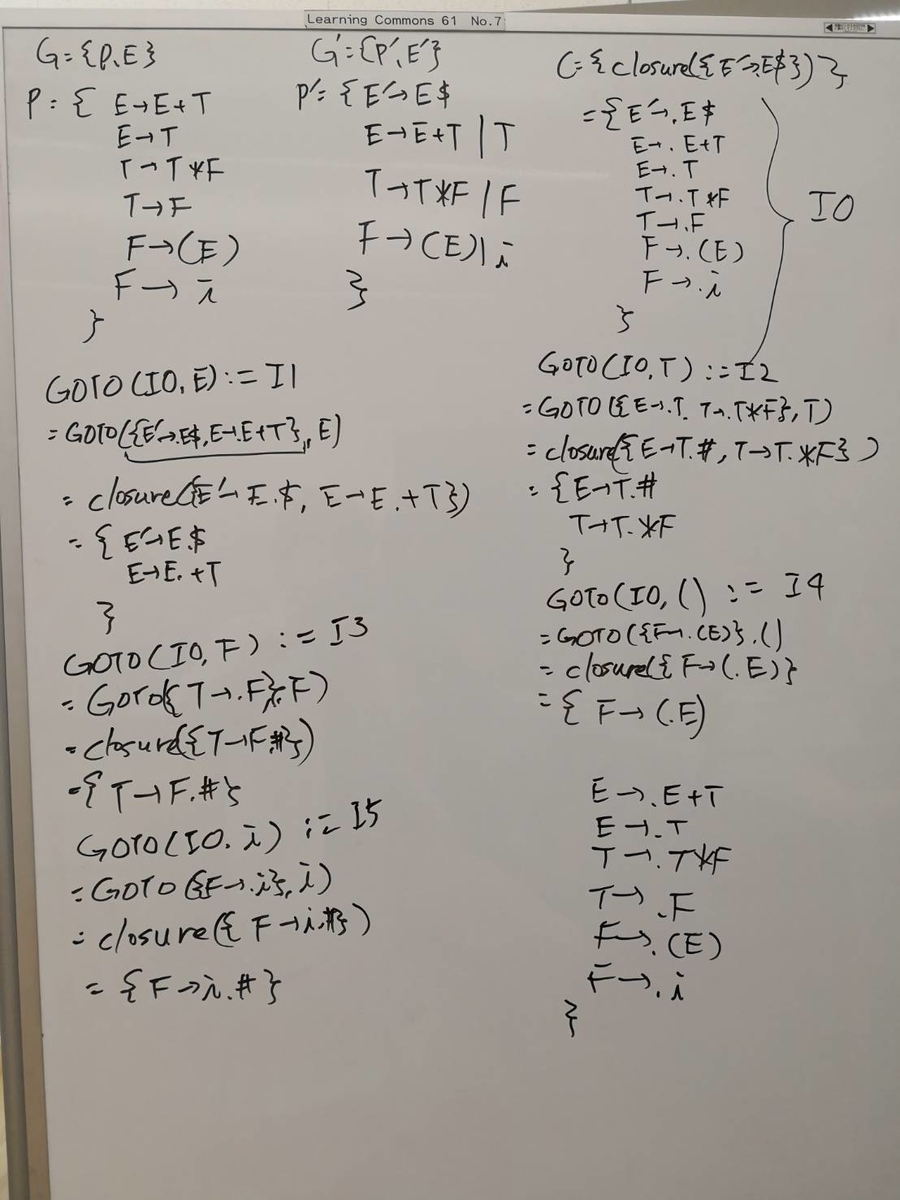 Learning Commons 61 No.7
G={P,E}
P={ E→E+T
E→T
T→T*F
T→F
F→(E)
F→i
}
G'={P',E'}
P'={E'→E$
E→E+T|T
T→T*F|F
F→(E)|i
}
C={closure({E'→.E$})}
={E'→.E$
E→.E+T
E→.T
T→.T*F
T→.F
F→.(E)
F→.i
}
I0
GOTO(I0,E):=I1
=GOTO({E'→.E$,E→.E+T},E)
=closure({E'→E.$, E→E.+T})
={E'→E.$
E→E.+T
}
GOTO(I0,T):=I2
=GOTO({E→.T, T→.T*F},T)
=closure({E→T.#,T→T.*F})
={E→T.#
T→T.*F
}
GOTO(I0,F):=I3
=GOTO({T→.F},F)
=closure({T→F.#})
={T→F.#}
GOTO(I0,():=I4
=GOTO({F→.(E)},()
=closure({F→(.E)}
={F→(.E)
E→.E+T
E→.T
T→.T*F
T→.F
F→.(E)
F→.i
}
GOTO(I0,i):=I5
=GOTO({F→.i},i)
=closure({F→i.#})
={F→i.#}